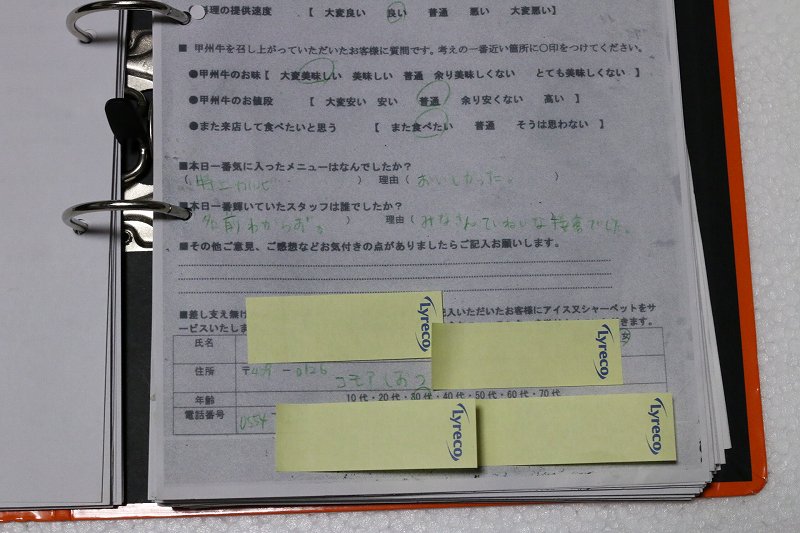 料理の提供速度 【 大変良い 良い 普通 悪い 大変悪い】
■ 甲州牛を召し上がっていただいたお客様に質問です。考えの一番近い箇所に○印をつけてください。
●甲州牛のお味【 大変美味しい 美味しい 普通 余り美味しくない とても美味しくない 】
●甲州牛のお値段 【 大変安い 安い 普通 余り安くない 高い 】
●また来店して食べたいと思う 【 また食べたい 普通 そうは思わない 】
■本日一番気に入ったメニューはなんでしたか?
( 特上カルビ ) 理由( おいしかった。 )
■本日一番輝いていたスタッフは誰でしたか?
( 名前わからず。 ) 理由( みなさんていねいな接客でした。
■その他ご意見、ご感想などお気付きの点がありましたらご記入お願いします。
■差し支え無け 記入いただいたお客様にアイス又シャーベットをサ
ービスいたしま きます。
氏名 女
住所 〒409-0126 コモアしおつ
年齢 10代・20代・30代・40代・50代・60代・70代
電話番号 0554-
Lyreco
Lyreco
Lyreco
Lyreco